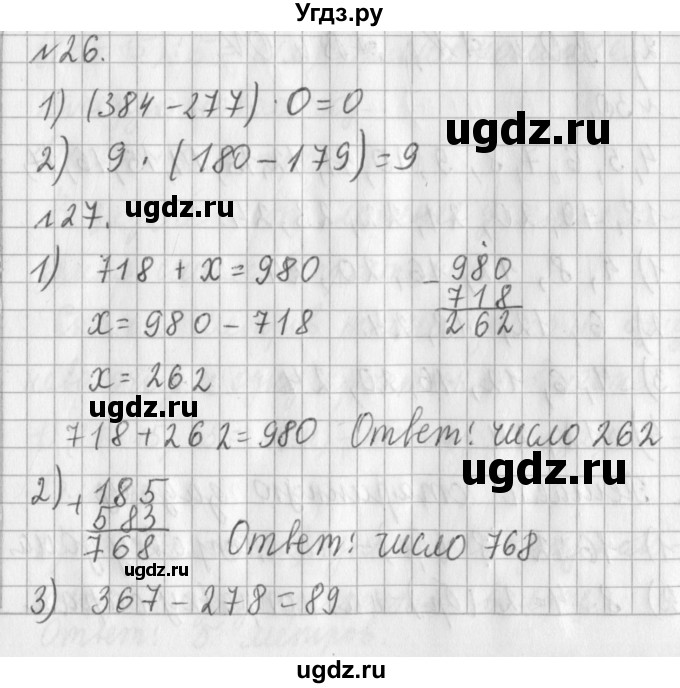 Угдз.ру
№26.
1) (384-277) · 0=0
2) 9 · (180-179)=9
ugdz.ru
ugdz.ru
№27.
1) 718 + x = 980
- 980
718
262
x = 980 - 718
x = 262
ugdz.ru
718+262=980 Ответ: число 262
ugdz.ru
2) + 185
583
768
Ответ: число 768
ugdz.ru
3) 367-278=89
ugdz.ru